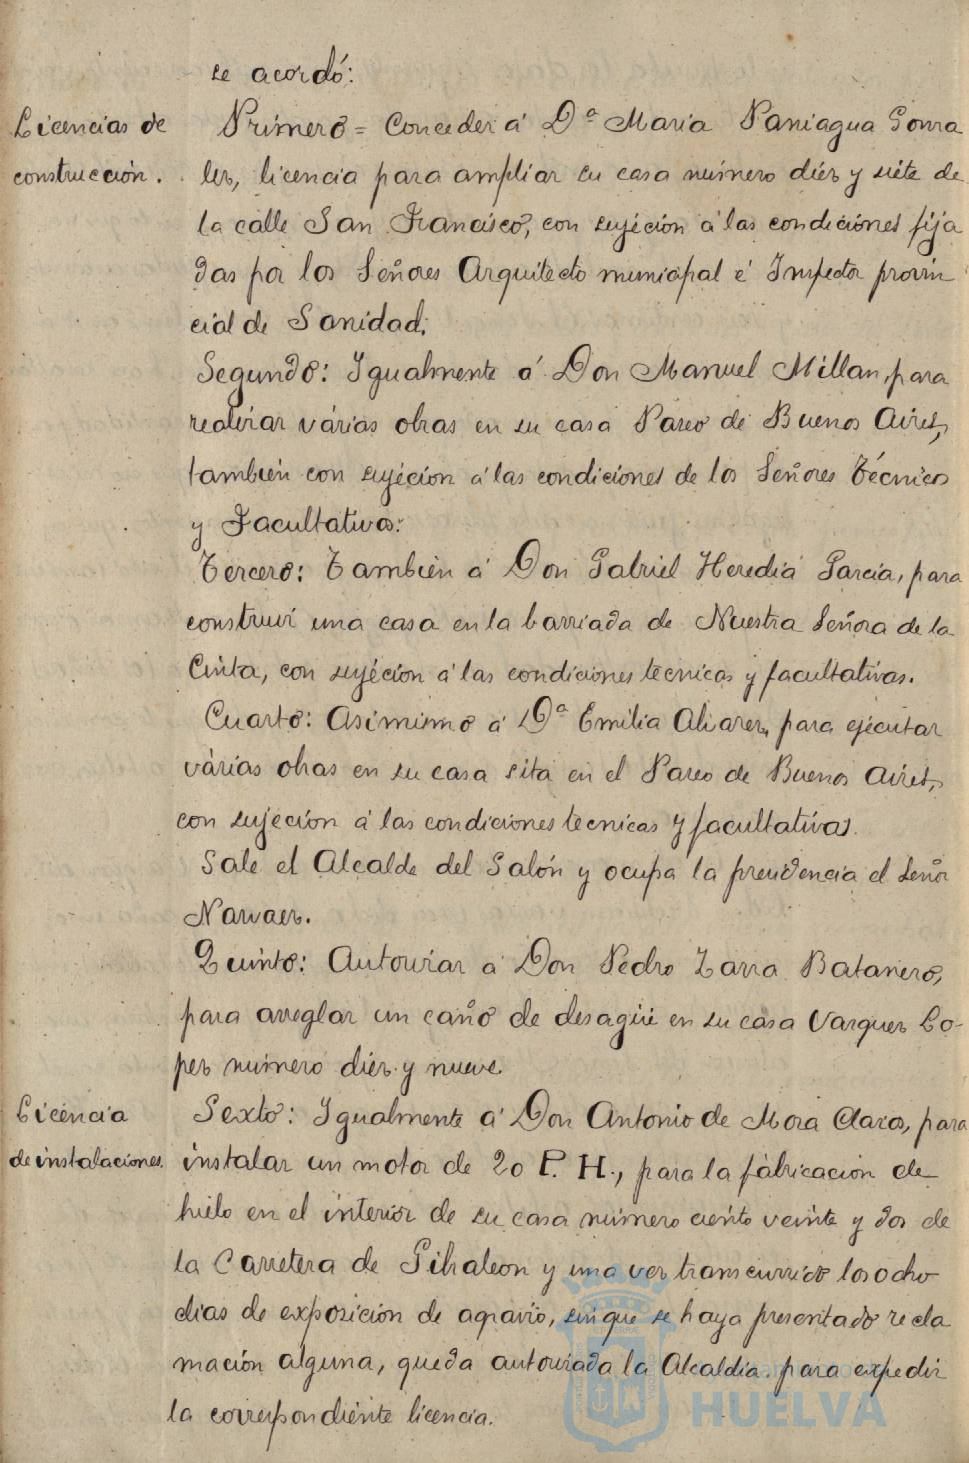 se acordó:
Licencias de
construcción.
Primero = Conceder á Dª María Paniagua Gonza
lez, licencia para ampliar su casa número diéz y siéte de
la calle San Francisco, con sujéción á las condiciónes fija
das por los Señores Arquitecto municipal é Inspector provin
cial de Sanidad.
Segundo: Igualmente á Don Manuel Millan, para
realizar várias obras en su casa Paseo de Buenos Aires,
también con sujéción á las condiciones de los Señores Técnicos
y Facultativos:
Tercero: También á Don Gabriel Heredia Garcia, para
construir una casa en la barriada de Nuestra Señora de la
Cinta, con sujéción á las condiciones tecnicas y facultativas.
Cuarto: Asimismo á Dª Emilia Alvarez, para ejécutar
várias obras en su casa sita en el Paseo de Buenos Aires,
con sujeción á las condiciones tecnicas y facultativas.
Sale el Alcalde del Salón y ocupa la presidencia el Señor
Narvaez.
Quinto: Autorizar á Don Pedro Zarza Batanero,
para arreglar un caño de desagüe en su casa Vazquez Lo-
pez número diéz y nueve.
Licencia
de instalaciones.
Sexto: Igualmente á Don Antonio de Mora Claros, para
instalar un motor de 20 P. H., para la fábricación de
hielo en el interior de su casa número ciento veinte y dos de
la Carretera de Gibraleon y una vez transcurrido los ocho
dias de exposición de agravio, sin que se haya presentado recla
mación alguna, queda autorizada la Alcaldía para expedir
la correspondiente licencia.
HUELVA